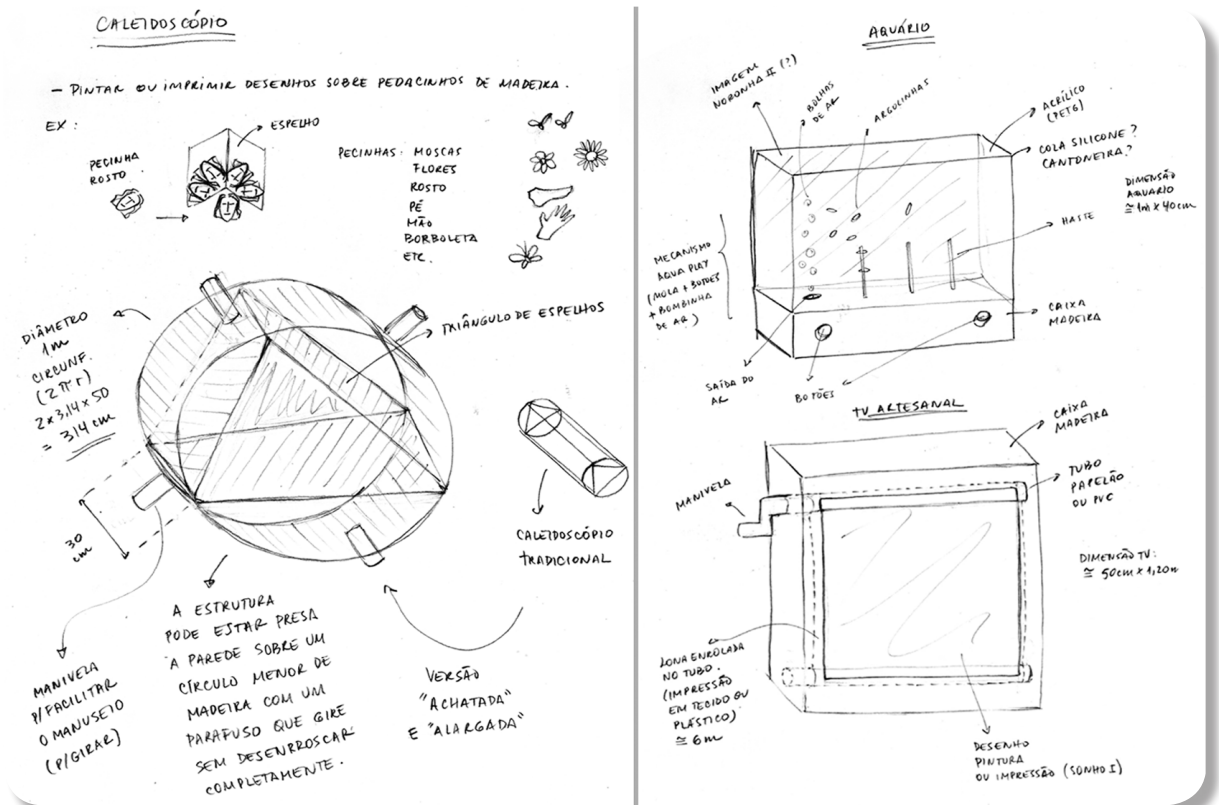 CALEIDOSCÓPIO
- PINTAR OU IMPRIMIR DESENHOS SOBRE PEDACINHOS DE MADEIRA.
EX:
PECINHA
ROSTO
ESPELHO
PECINHAS: MOSCAS
FLORES
ROSTO
PÉ
MÃO
BORBOLETA
ETC.
DIÂMETRO
1m
CIRCUNF.
(2πr)
2x3,14x50
= 314 cm
TRIÂNGULO DE ESPELHOS
30
cm
CALEIDOSCÓPIO
TRADICIONAL
MANIVELA
P/FACILITAR
O MANUSEIO
(P/GIRAR)
A ESTRUTURA
PODE ESTAR PRESA
A PAREDE SOBRE UM
CÍRCULO MENOR DE
MADEIRA COM UM
PARAFUSO QUE GIRE
SEM DESENRROSCAR
COMPLETAMENTE.
VERSÃO
"ACHATADA"
E "ALARGADA"
AQUÁRIO
IMAGEM
NORONHA II (?)
BOLHAS
DE AR
ARGOLINHAS
ACRÍLICO
(PETG)
COLA SILICONE?
CANTONEIRA?
DIMENSÃO
AQUARIO
≅ 1m x 40cm
HASTE
MECANISMO
AQUA PLAY
(MOLA + BOTÕES
+ BOMBINHA
DE AR)
CAIXA
MADEIRA
SAÍDA DO
AR
BOTÕES
TV ARTESANAL
CAIXA
MADEIRA
MANIVELA
TUBO
PAPELÃO
OU PVC
DIMENSÃO TV:
≅ 50cm x 1,20m
LONA ENROLADA
NO TUBO.
(IMPRESSÃO
EM TECIDO OU
PLÁSTICO)
≅ 6m
DESENHO
PINTURA
OU IMPRESSÃO (SONHO I)